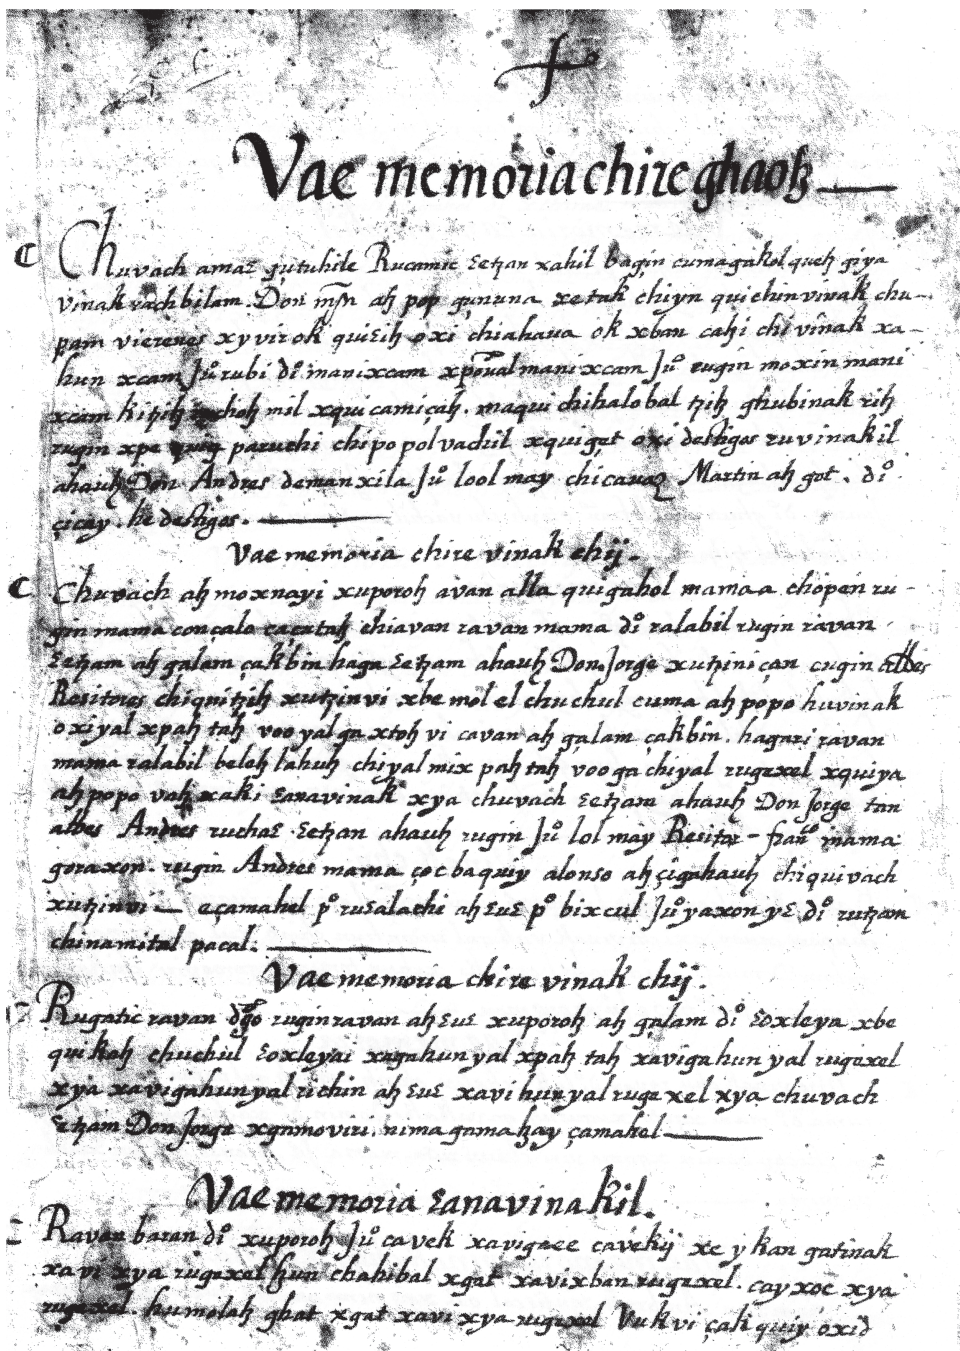 Vae memoria chire ghaoꜩ
Chuvach amaɛ gutuhile Rucamic ɛeꜩan xahil bagin cumagahol queꜩ giya
vinak rachbilam. Don ah pop gununa xetak chiyn quichin vinak chu-
pam vierenes xyvirok quiɛih oxi chiahaua ok xban cahi chi vinak xa-
hun xcam Juº rubi diº manixcam manixcam Juº rugin moxin mani
xcam mil xquicamiçah. maqui chihalobal tzih ghubinak rih
rugin xpe paruchi chipopolvachil xquigat oxi destigos ruvinakil
ahauh Don Andres demanxila Juº lool may chicauaɛ Martin ah got. diº
çicay. he destigos.
Vae memoria chire vinak chij.
Chuvach ah moxnayi xuporoh avan alla quigahol mama a chopen ru-
gin mama conçalo caçatah chiavan ravan mama diº ralabil rugin ravan
ɛeꜩam ah galam çakbin haga ɛeꜩam ahauh Don Jorge xutzini çan cugin allŭes
Resitores chiquitzih xutzinvi xbe mol el chuchul cuma ah popo huvinak
oxi yal xpah tah voo yal ga xtoh vi cavan ah galam çakbin. hagari ravan
mama ralabil beleh lahuh chiyal mix pah tah voo ga chiyal rugexel xquiya
ah popo vah xaki ɛanavinak xya chuvach ɛeꜩam ahauh Don Jorge tan
albes Andres ruchaɛ ɛeꜩan ahauh rugin Juº lol may Resitor - franco mama
goraxon. rugin Andres mama çoc baquiy alonso ah çigahauh chiquivach
xutzinvi — eçamahel pº ruɛalachi ah ɛuɛ pº bixcul Juº yaxon yɛ diº rutzam
chinamital pacal.
Vae memoria chire vinak chij.
Rugatic ravan dgo rugin ravan ah ɛuɛ xuporoh ah galam diº ɛoxleya xbe
quikah chuchul ɛoxleyai xagahun yal xpah tah xavigahun yal rugexel
xya xavigahun yal richin ah ɛuɛ xavi hun yal rugexel xya chuvach
ɛeꜩam Don Jorge xgamoviri. nima gamahay çamahel
Vae memoria ɛanavinakil.
Ravan baran diº xuporoh Juº cavek xavigaee cavekij xe ykan gatinak
xavi xya rugexel hun chahibal xgat xavixban rugexel. cay xoc xya
rugexel. humolah ghat xgat xavi xya rugexel Vukvi çak quiy oxid